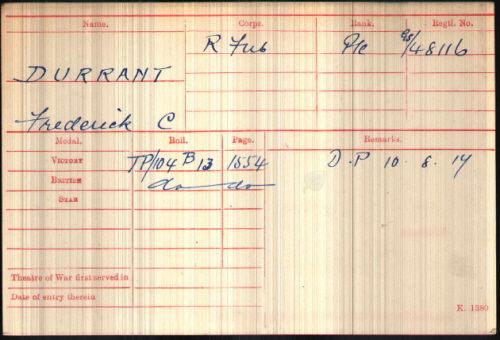 Name. Corps. Rank. Regtl. No.
R Fus Pte GS/48116
DURRANT
Frederick C
Medal. Roll. Page. Remarks.
Victory TP/104 B 13 1554 D.P 10.8.17
British do do
Star
Theatre of War first served in
Date of entry therein
K. 1380